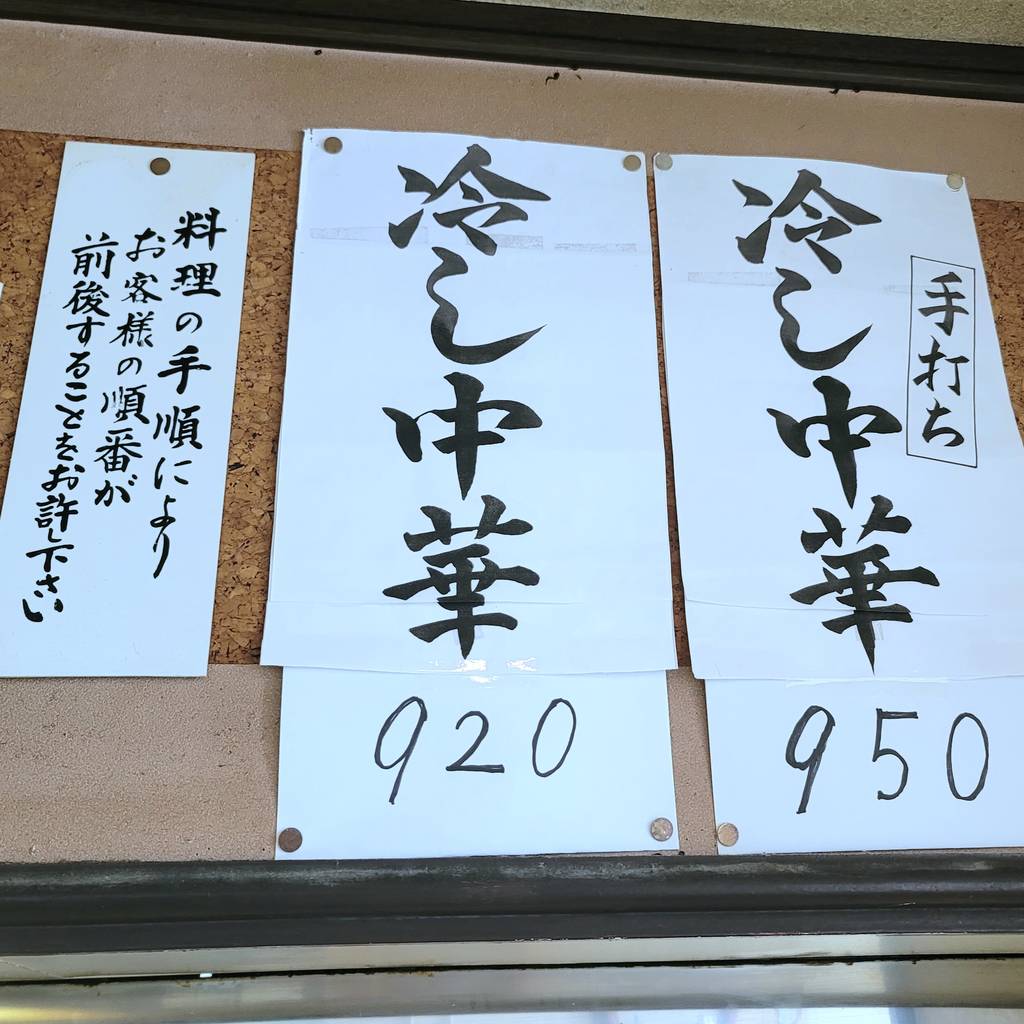 手打ち
冷し中華
950
冷し中華
920
料理の手順により
お客様の順番が
前後することをお許し下さい